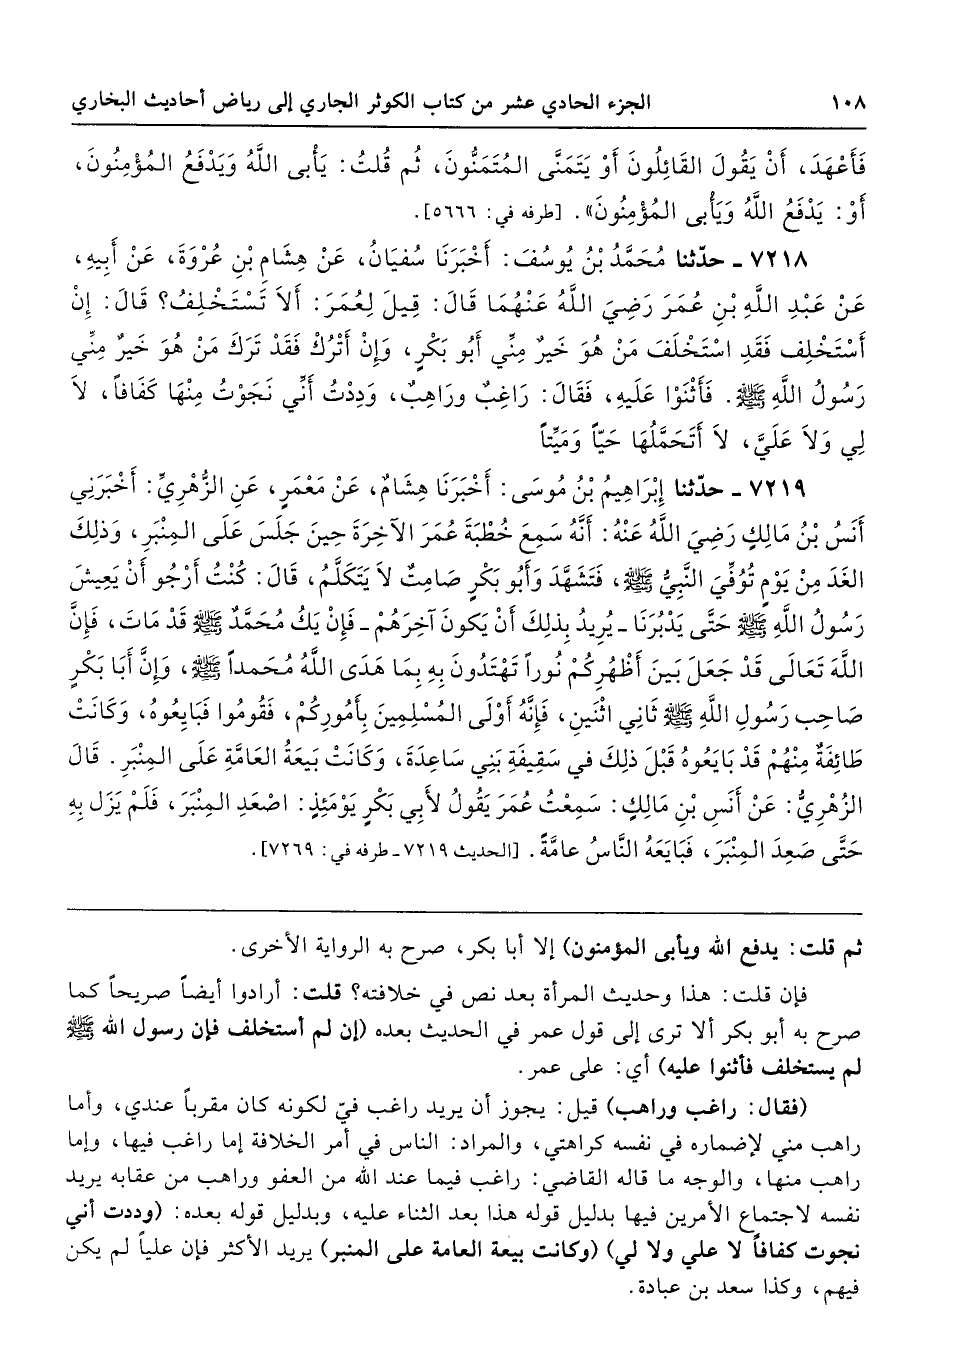 ١٠٨ الجزء الحادي عشر من كتاب الكوثر الجاري إلى رياض أحاديث البخاري
فَأَعْهَدَ، أَنْ يَقُولَ القَائِلُونَ أَوْ يَتَمَنَّى المُتَمَنُّونَ، ثُم قُلتُ: يَأْبى اللَّهُ وَيَدْفَعُ المُؤْمِنُونَ،
أَوْ: يَدْفَعُ اللَّهُ وَيَأْبى المُؤْمِنُونَ». [طرفه في: ٥٦٦٦].
٧٢١٨ ـ حدّثنا مُحَمَّدُ بْنُ يُوسُفَ: أَخْبَرَنَا سُفيَانُ، عَنْ هِشَامِ بْنِ عُرْوَةَ، عَنْ أَبِيهِ،
عَنْ عَبْدِ اللَّهِ بْنِ عُمَرَ رَضِيَ اللَّهُ عَنْهُمَا قَالَ: قِيلَ لِعُمَرَ: أَلاَ تَسْتَخْلِفُ؟ قَالَ: إِنْ
أَسْتَخْلِف فَقَدِ اسْتَخْلَفَ مَنْ هُوَ خَيرٌ مِنِّي أَبُو بَكْرٍ، وَإِنْ أَتْرُكْ فَقَدْ تَرَكَ مَنْ هُوَ خَيرٌ مِنِّي
رَسُولُ اللَّهِ ﷺ. فَأَثْنَوْا عَلَيهِ، فَقَالَ: رَاغِبٌ ورَاهِبٌ، وَدِدْتُ أَنِّي نَجَوْتُ مِنْهَا كَفَافاً، لاَ
لِي وَلاَ عَلَيَّ، لاَ أَتَحَمَّلُهَا حَيّاً وَمَيِّتاً
٧٢١٩ ـ حدّثنا إِبْرَاهِيمُ بْنُ مُوسَى: أَخْبَرَنَا هِشَامٌ، عَنْ مَعْمَرٍ، عَنِ الزُّهْرِيِّ: أَخْبَرَنِي
أَنَسُ بْنُ مَالِكٍ رَضِيَ اللَّهُ عَنْهُ: أَنَّهُ سَمِعَ خُطْبَةَ عُمَرَ الآخِرَةَ حِينَ جَلَسَ عَلَى المِنْبَرِ، وَذلِكَ
الغَدَ مِنْ يَوْمٍ تُوُفِّيَ النَّبِيُّ ﷺ، فَتَشَهَّدَ وَأَبُو بَكْرٍ صَامِتٌ لاَ يَتَكَلَّمُ، قَالَ: كُنْتُ أَرْجُو أَنْ يَعِيشَ
رَسُولُ اللَّهِ ﷺ حَتَّى يَدْبُرَنَا ـ يُرِيدُ بِذلِكَ أَنْ يَكُونَ آخِرَهُمْ ـ فَإِنْ يَكُ مُحَمَّدٌ ﷺ قَدْ مَاتَ، فَإِنَّ
اللَّهَ تَعَالَى قَدْ جَعَلَ بَينَ أَظْهُرِكُمْ نُوراً تَهْتَدُونَ بِهِ بِمَا هَدَى اللَّهُ مُحَمداً ﷺ، وَإِنَّ أَبَا بَكْرٍ
صَاحِب رَسُولِ اللَّهِ ﷺ ثَانِي اثْنَينِ، فَإِنَّهُ أَوْلَى المُسْلِمِينَ بِأُمُورِكُمْ، فَقُومُوا فَبَايِعُوهُ، وَكَانَتْ
طَائِفَةٌ مِنْهُمْ قَدْ بَايَعُوهُ قَبْلَ ذلِكَ في سَقِيفَةِ بَنِي سَاعِدَةَ، وَكَانَتْ بَيعَةُ العَامَّةِ عَلَى المِنْبَرِ. قَالَ
الزُهْرِيُّ: عَنْ أَنَسِ بْنِ مَالِكٍ: سَمِعْتُ عُمَرَ يَقُولُ لأَبِي بَكْرٍ يَوْمَئِذٍ: اصْعَدِ المِنْبَرَ، فَلَمْ يَزَل بِهِ
حَتَّى صَعِدَ المِنْبَرَ، فَبَايَعَهُ النَّاسُ عامَّةً. [الحديث ٧٢١٩ ـ طرفه في: ٧٢٦٩].
ثم قلت: يدفع الله ويأبى المؤمنون) إلا أبا بكر، صرح به الرواية الأخرى.
فإن قلت: هذا وحديث المرأة بعد نص في خلافته؟ قلت: أرادوا أيضاً صريحاً كما
صرح به أبو بكر ألا ترى إلى قول عمر في الحديث بعده (إن لم أستخلف فإن رسول الله ﷺ
لم يستخلف فأثنوا عليه) أي: على عمر.
(فقال: راغب وراهب) قيل: يجوز أن يريد راغب فيّ لكونه كان مقرباً عندي، وأما
راهب مني لإضماره في نفسه كراهتي، والمراد: الناس في أمر الخلافة إما راغب فيها، وإما
راهب منها، والوجه ما قاله القاضي: راغب فيما عند الله من العفو وراهب من عقابه يريد
نفسه لاجتماع الأمرين فيها بدليل قوله هذا بعد الثناء عليه، وبدليل قوله بعده: (وددت أني
نجوت كفافاً لا علي ولا لي) (وكانت بيعة العامة على المنبر) يريد الأكثر فإن علياً لم يكن
فيهم، وكذا سعد بن عبادة.